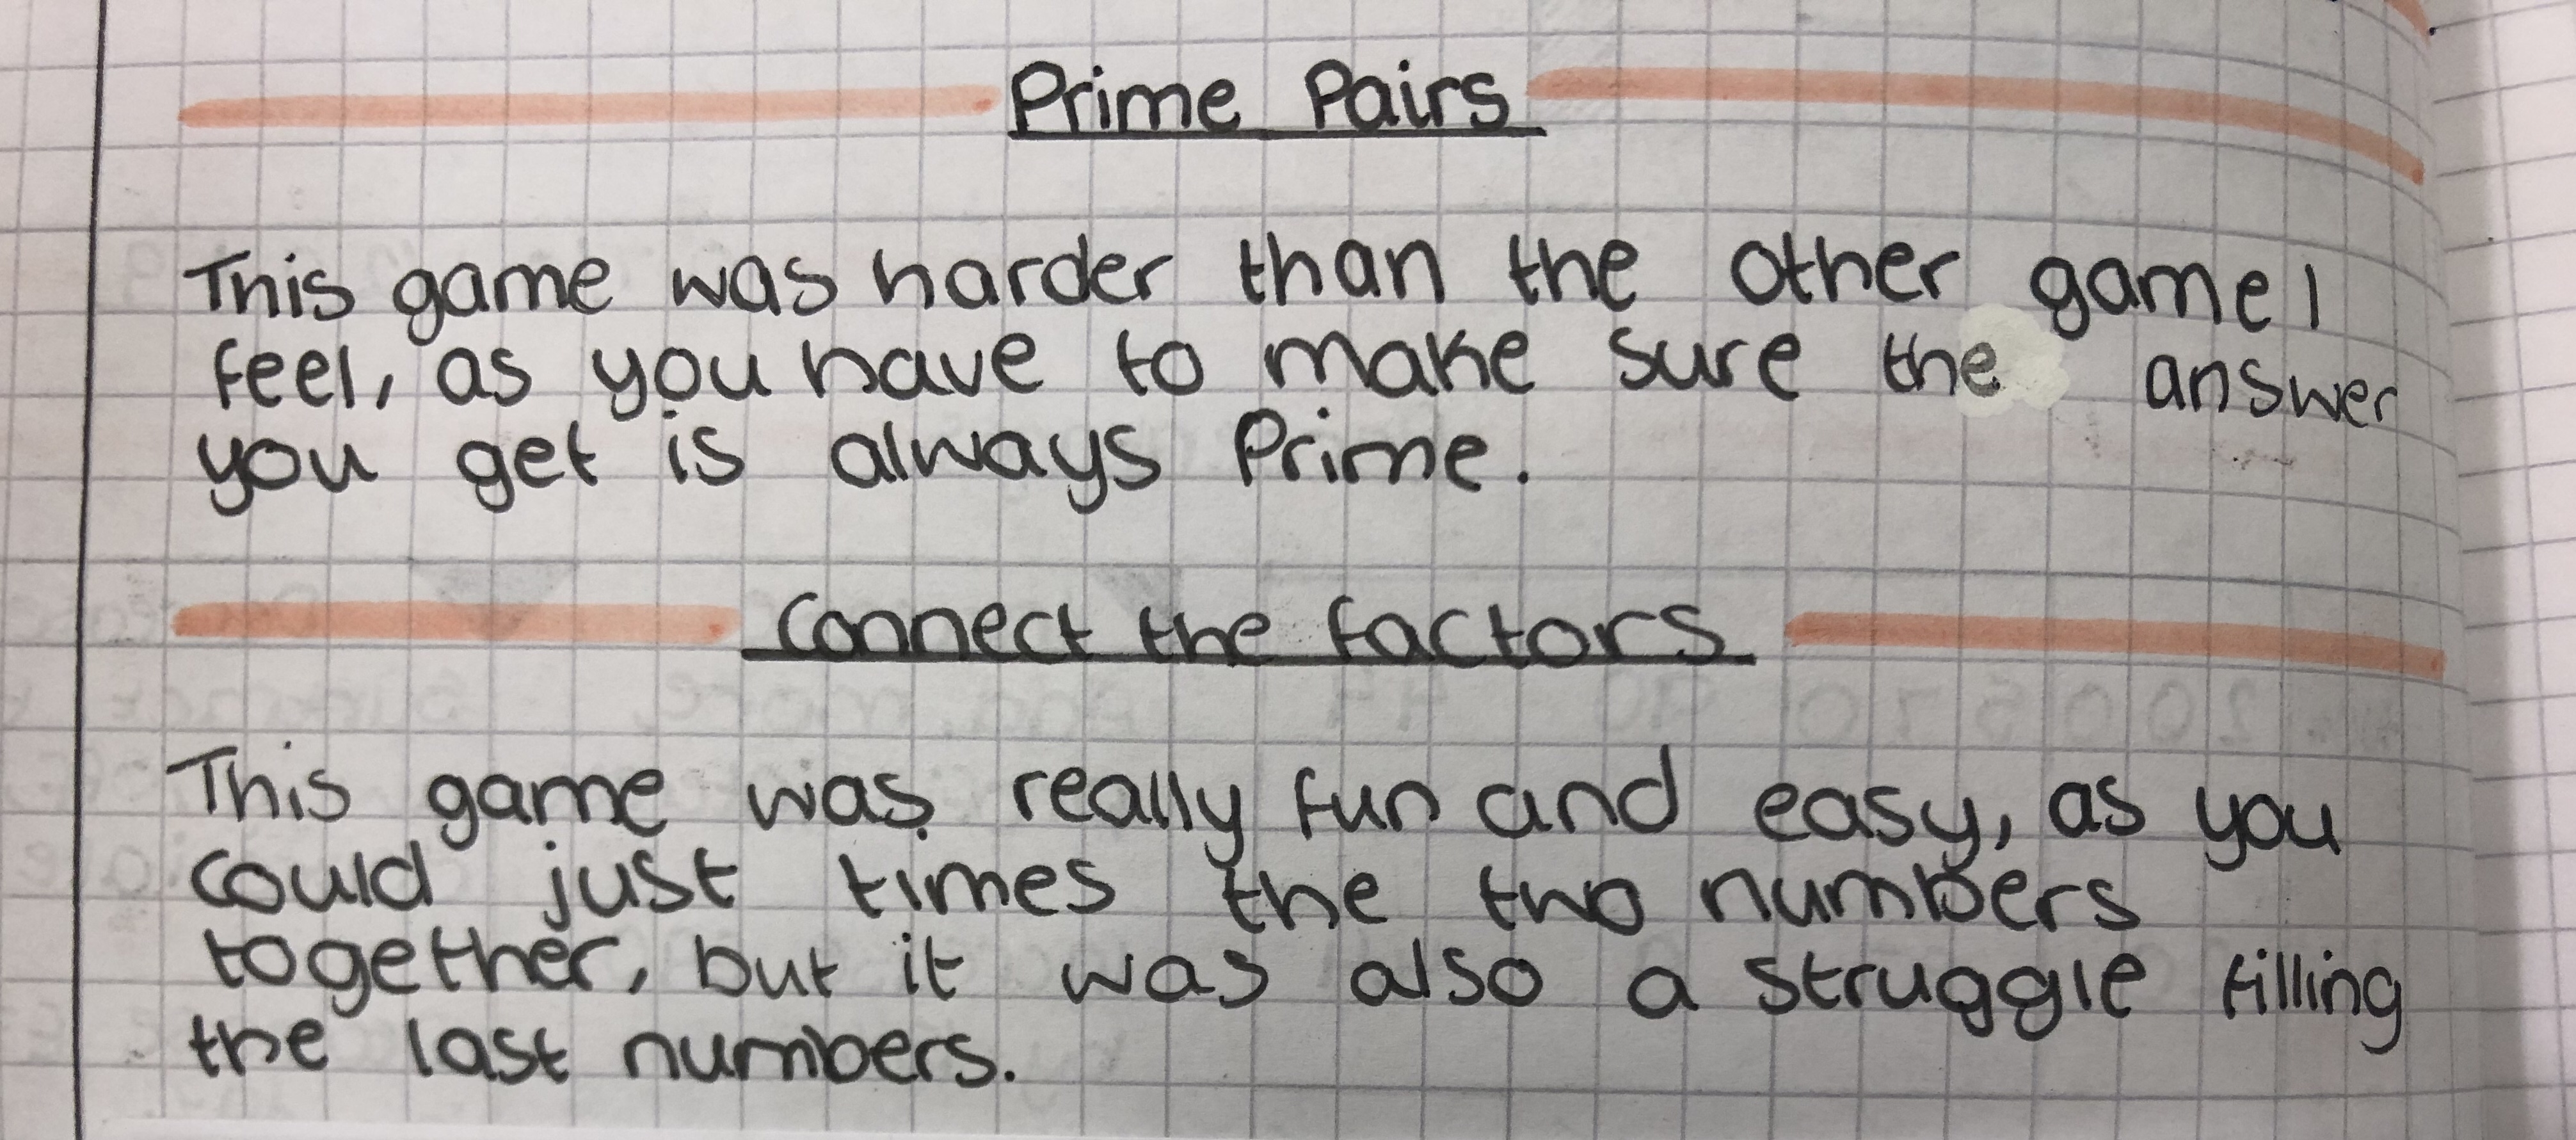 Prime Pairs
This game was harder than the other game I
feel, as you have to make sure the answer
you get is always Prime.
Connect the factors
This game was really fun and easy, as you
could just times the two numbers
together, but it was also a struggle filling
the last numbers.